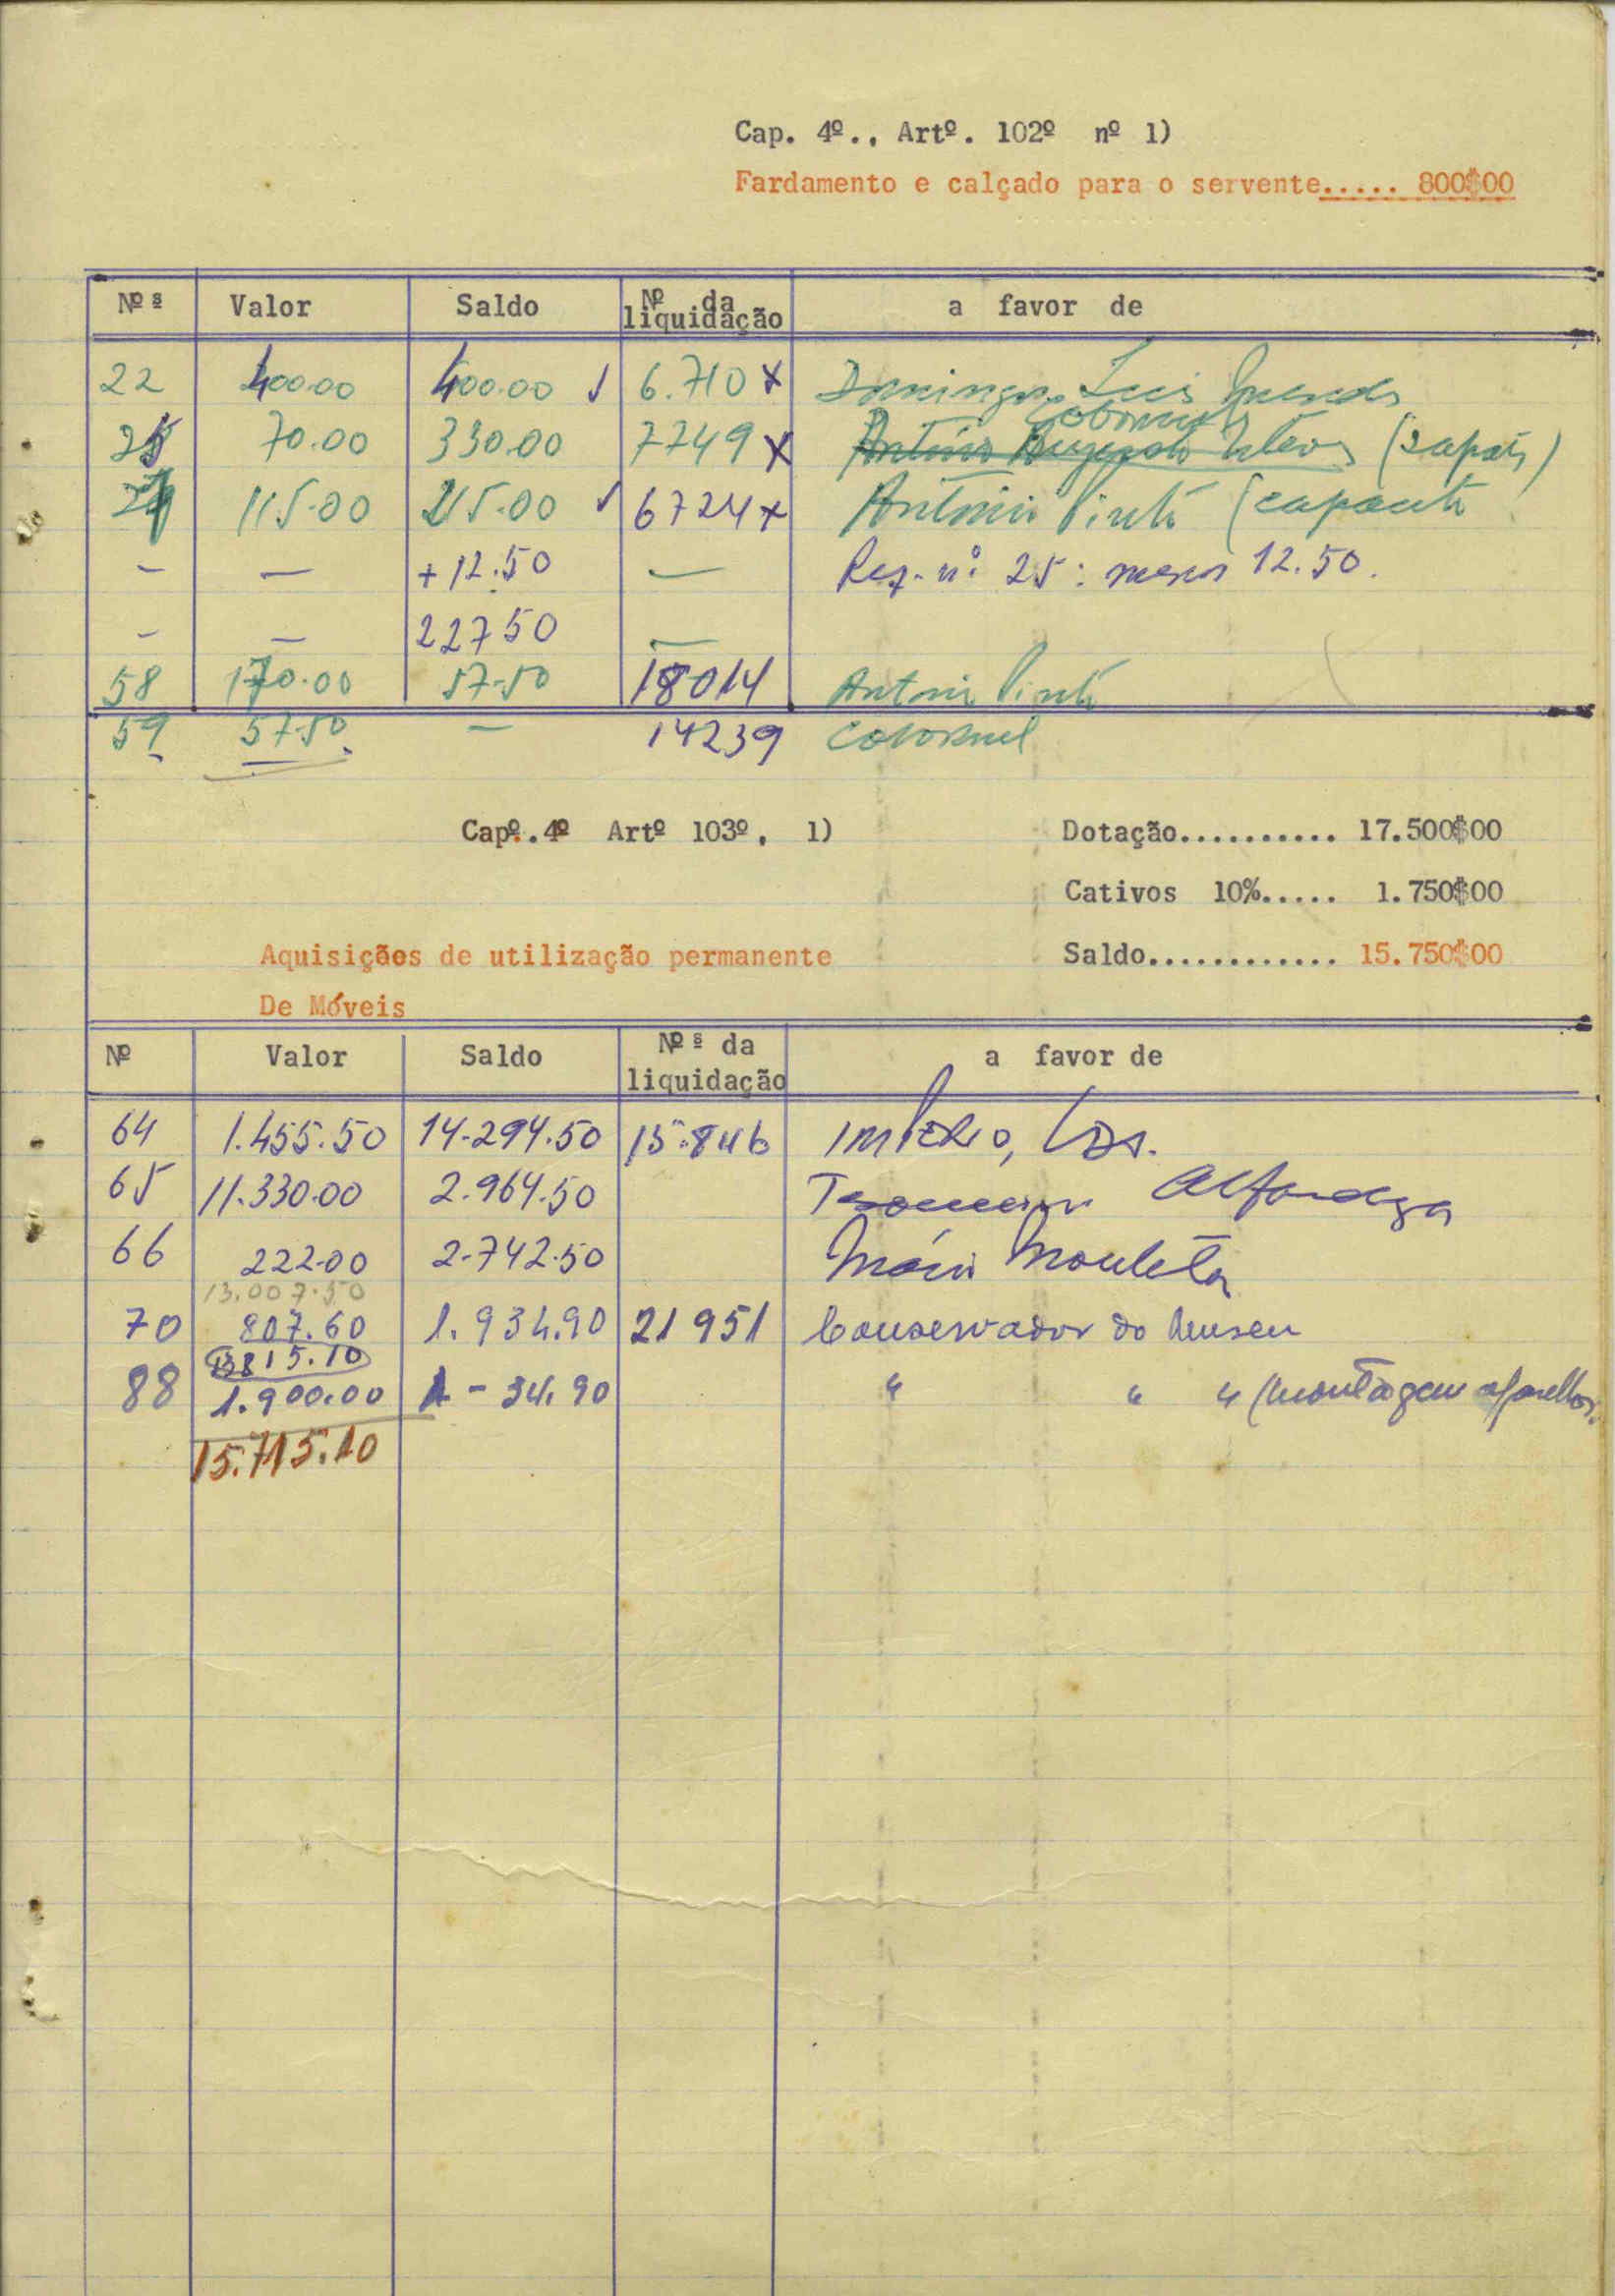 Cap. 4º., Artº. 102º nº 1)
Fardamento e calçado para o servente..... 800$00
Nºs Valor Saldo Nº da liquidação a favor de
22 400.00 400.00 6.710 x Domingos Luis Mendes
Cobornel
25 70.00 330.00 7749 x António Augusto (sapats)
115.00 215.00 6724 x António Pinto (capacete
- — +12.50 — Req. nº 25: menos 12.50.
- — 227 50 —
58 170.00 57.50 18014 Antonio Pinto
59 57.50 — 14239 Cobornel
Capº.4º Artº 103º, 1) Dotação.......... 17.500$00
Cativos 10%..... 1.750$00
Aquisições de utilização permanente Saldo............ 15.750$00
De Móveis
Nº Valor Saldo Nºs da liquidação a favor de
64 1.455.50 14.294.50 15.846 Império, Lda.
65 11.330.00 2.964.50 Tesoureiro Alfandega
66 222.00 2.742.50 Mário
13.007.50
70 807.60 1.934.90 21951 Conservador do Museu
13815.10
88 1.900.00 - 34.90 " " " (montagem aparelhos.
15.715.10